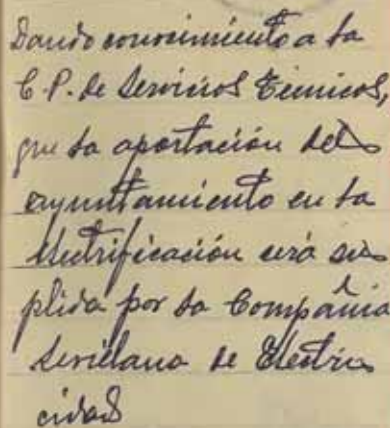 Dando conocimiento a la
C.P. de Servicios Técnicos,
que la aportación del
ayuntamiento en la
electrificación será su
plida por la Compañia
Sevillana de Electri
cidad